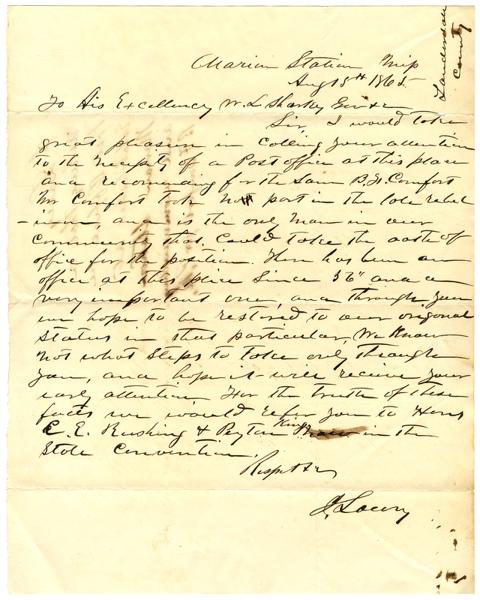 Lauderdale
County
Marion Station Miss
Aug 18th 1865
To His Excellency W. L. Sharkey
Sir, I would take
great pleasure in calling your attention
to the necessity of a Post office at this place
and recomending for the same B. F. Comfort
Mr Comfort took no part in the late rebel
-ion, and is the only man in our
community that could take the oath of
office for the position. There has been an
office at this place since 56" and a
very important one, and through you
we hope to be restored to our original
status in that particular, We know
not what steps to take only through
you, and hope it will receive your
early attention. For the truth of these
facts we would refer you to Hons
C. E. Rushing & Peyton King in the
State Convention.
J. Lowry